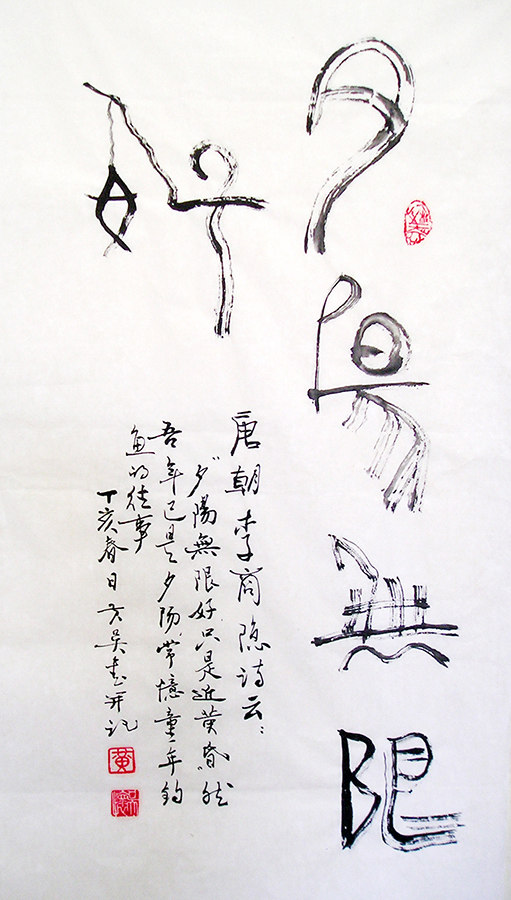 夕陽無限
好
唐朝李商隐诗云：
“夕陽無限好只是近黄昏”然
吾年已是夕阳常憶童年钓
鱼的往事
丁亥春日 吴 画并记
黄